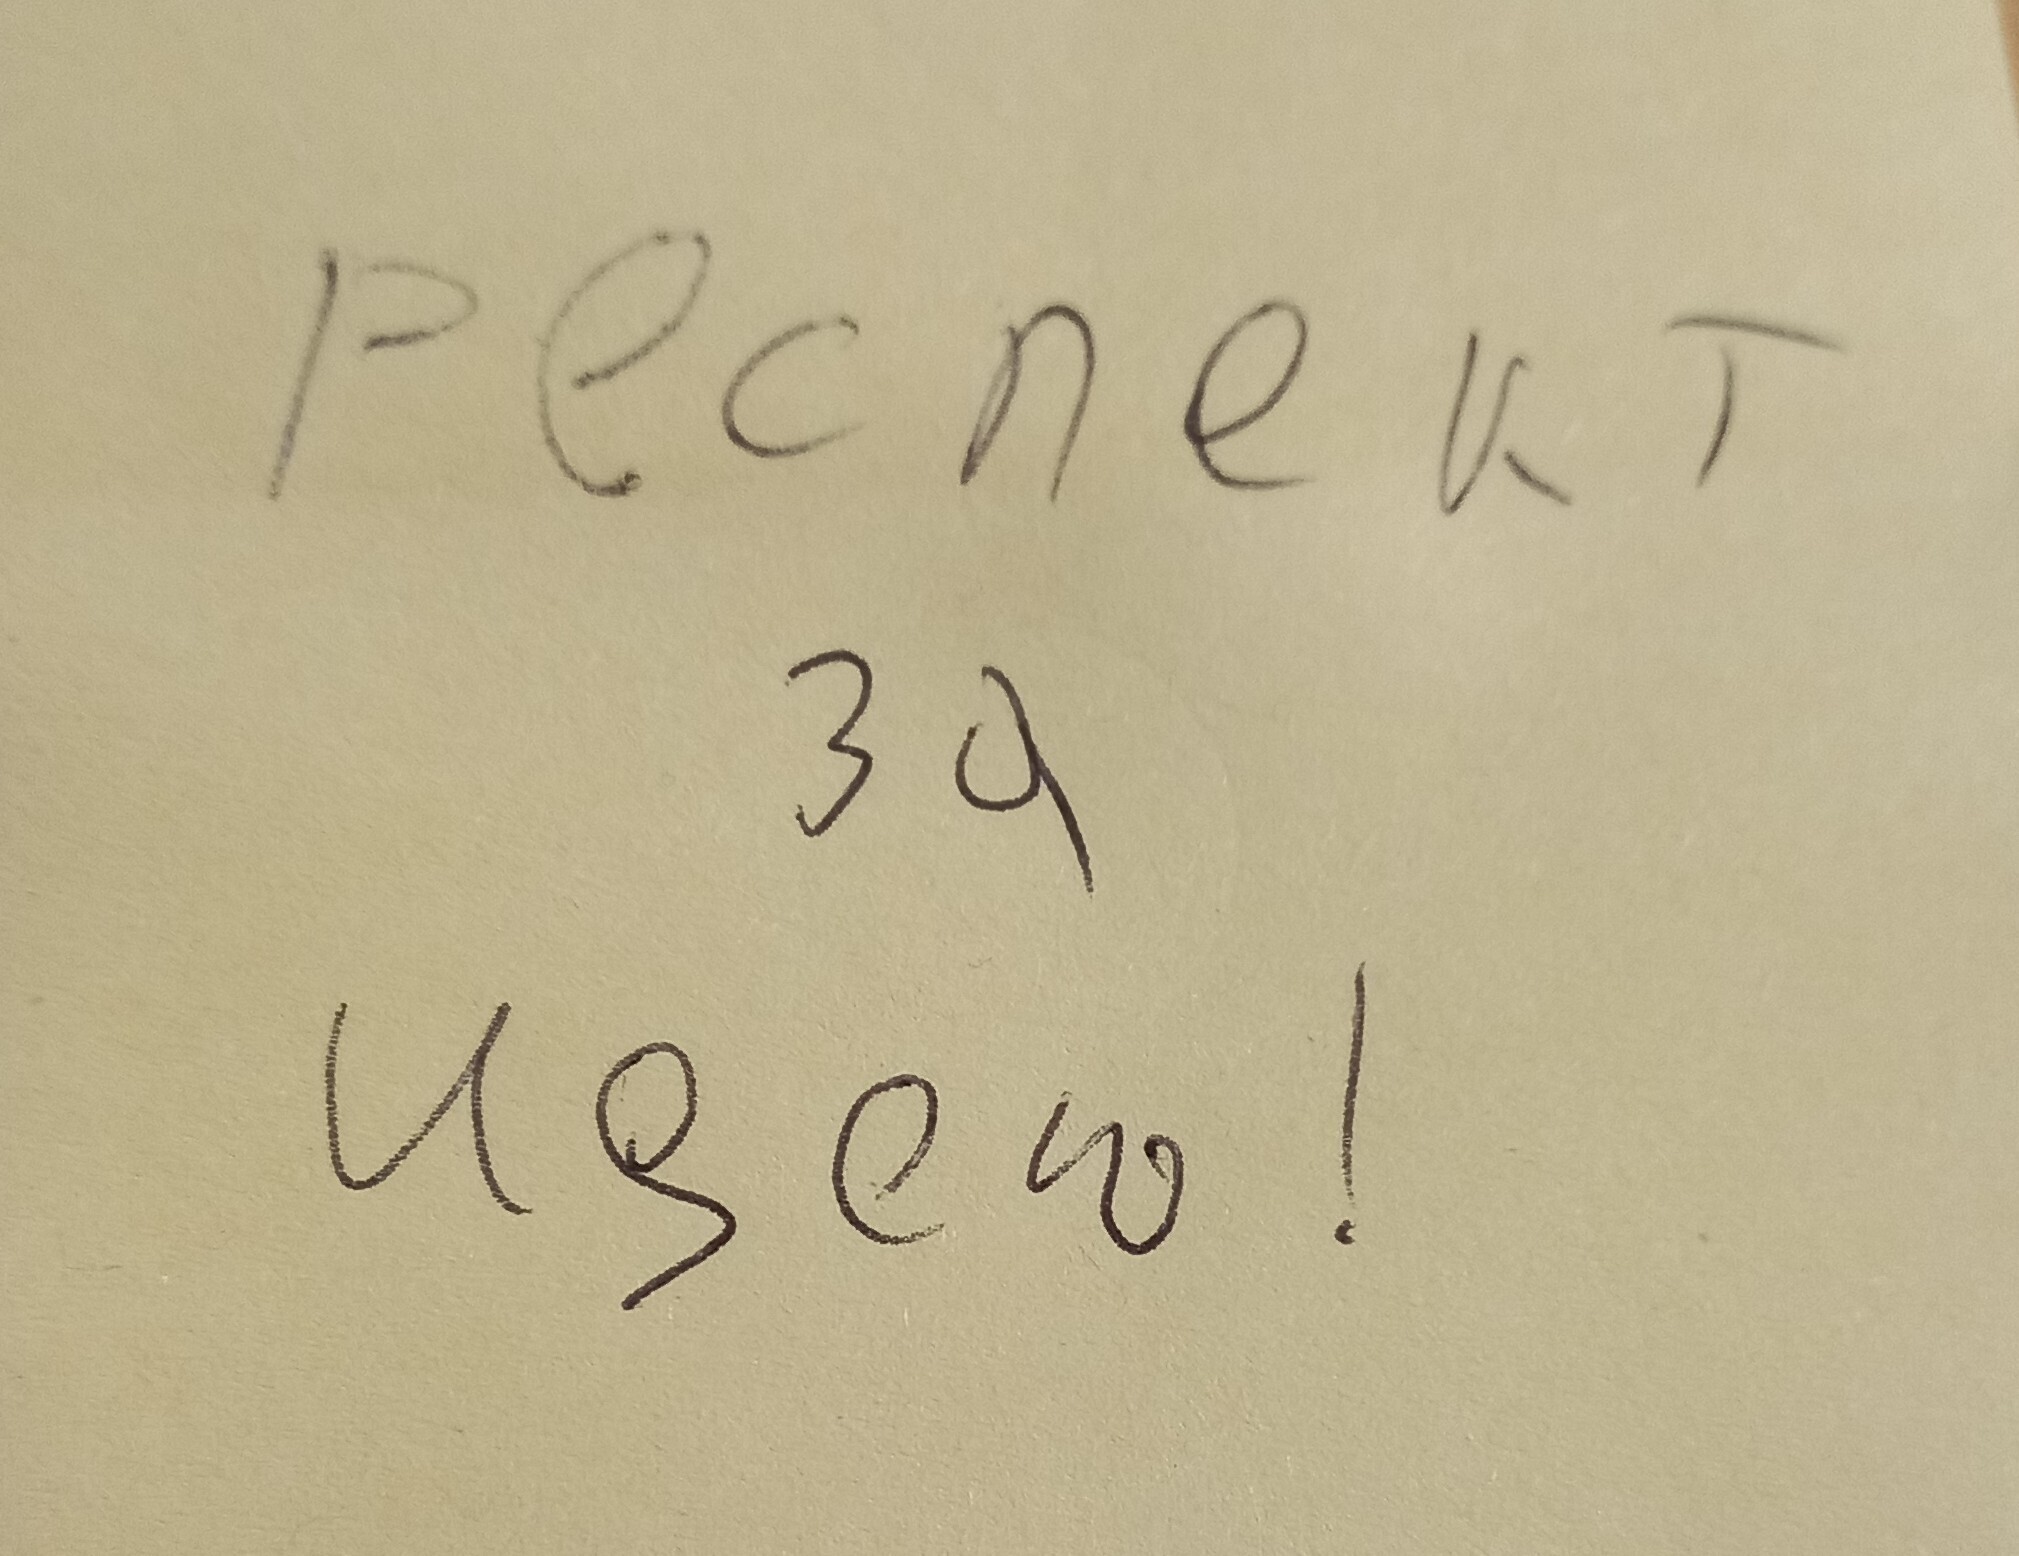 Респект
за
идею!